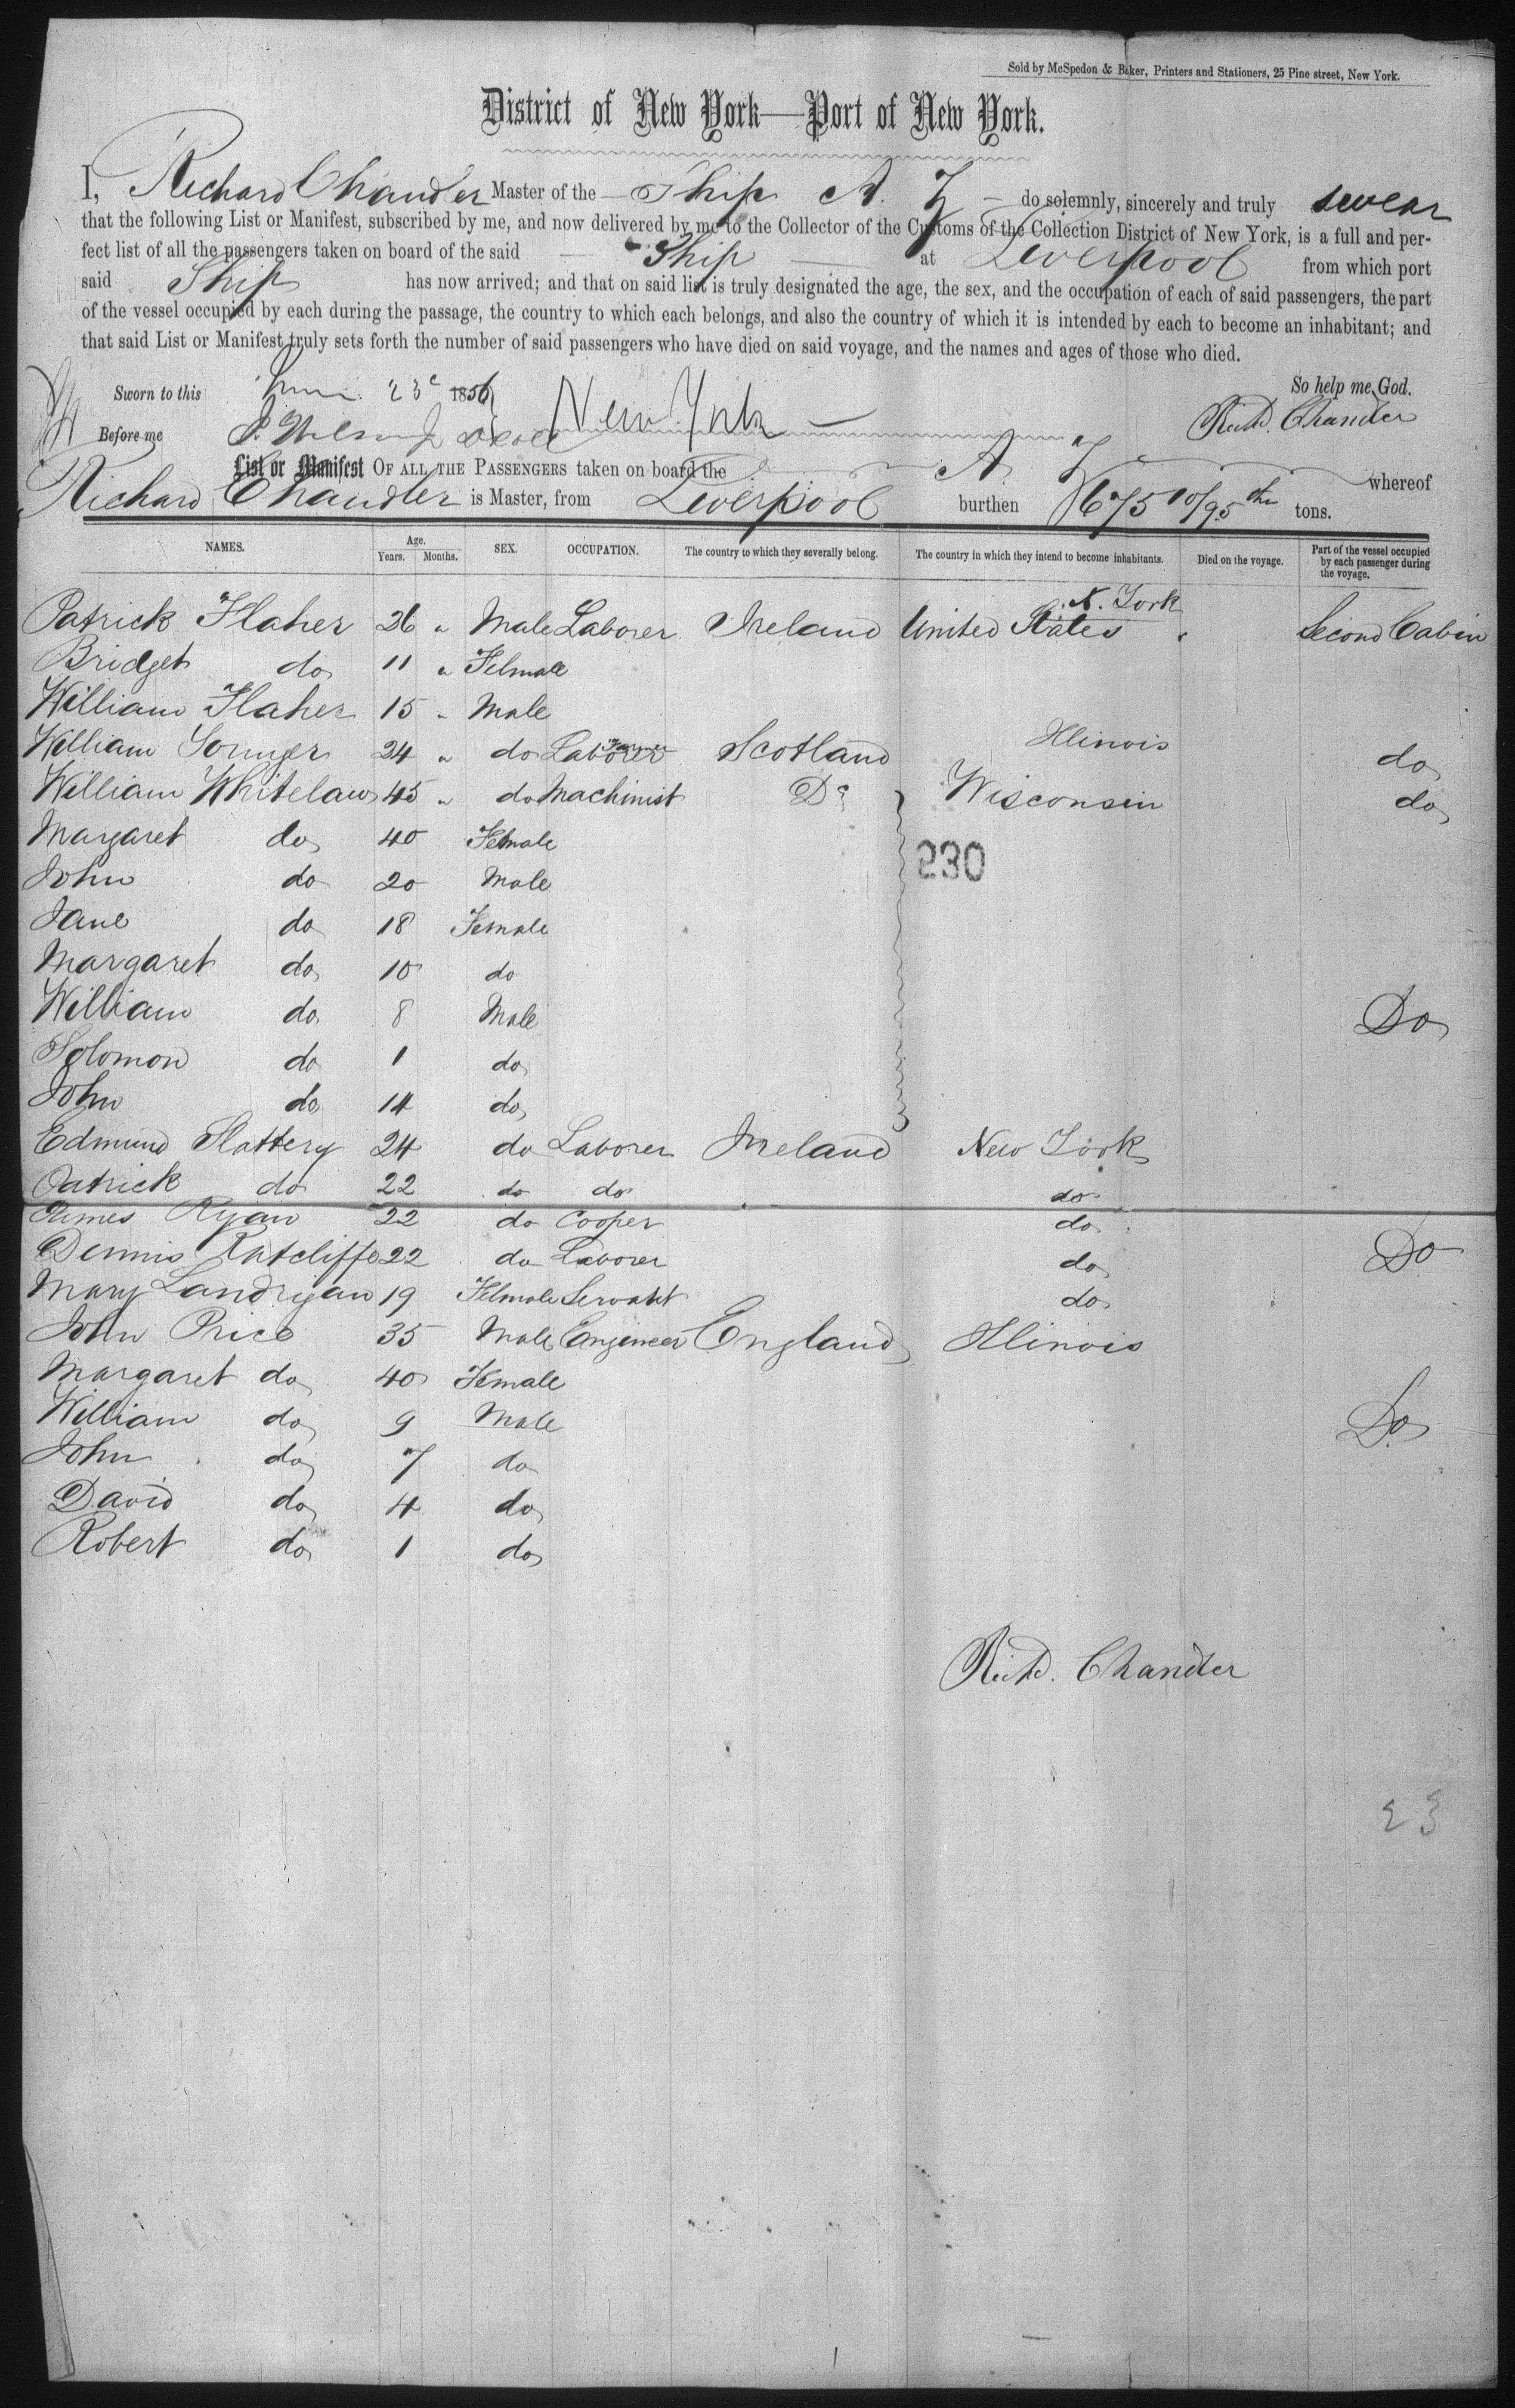 Sold by McSpedon & Baker, Printers and Stationers, 25 Pine street, New York.
District of New York—Port of New York.
I, Richard Chandler Master of the Ship A. Z do solemnly, sincerely and truly swear
that the following List or Manifest, subscribed by me, and now delivered by me to the Collector of the Customs of the Collection District of New York, is a full and per-
fect list of all the passengers taken on board of the said Ship at Liverpool from which port
said Ship has now arrived; and that on said list is truly designated the age, the sex, and the occupation of each of said passengers, the part
of the vessel occupied by each during the passage, the country to which each belongs, and also the country of which it is intended by each to become an inhabitant; and
that said List or Manifest truly sets forth the number of said passengers who have died on said voyage, and the names and ages of those who died.
So help me God.
Sworn to this 23 1856 New York
Richd. Chandler
Before me
List or Manifest OF ALL THE PASSENGERS taken on board the A Z whereof
Richard Chandler is Master, from Liverpool burthen 675 10/95 ths tons.
NAMES. Age. Years. Months. SEX. OCCUPATION. The country to which they severally belong. The country in which they intend to become inhabitants. Died on the voyage. Part of the vessel occupied by each passenger during the voyage.
N. York
Patrick Flaher 26 " Male Laborer Ireland United States " Second Cabin
Bridget do 11 " Felmale
William Flaher 15 " Male
William Younger 24 " do Laborer Farmer Scotland Illinois do
William Whitelaw 45 " do Machinist Do Wisconsin do
Margaret do 40 Female
230
John do 20 Male
Jane do 18 Female
Margaret do 10 do
William do 8 Male Do
Solomon do 1 do
John do 14 do
Edmund Slattery 24 do Laborer Ireland New York
Patrick do 22 do do do
James Ryan 22 do Cooper do
Dennis Ratcliffe 22 do Laborer do Do
Mary Landrigan 19 Felmale Servant do
John Price 35 Male Engineer England Illinois
Margaret do 40 Female
William do 9 Male Do
John do 7 do
David do 4 do
Robert do 1 do
Richd. Chandler
23